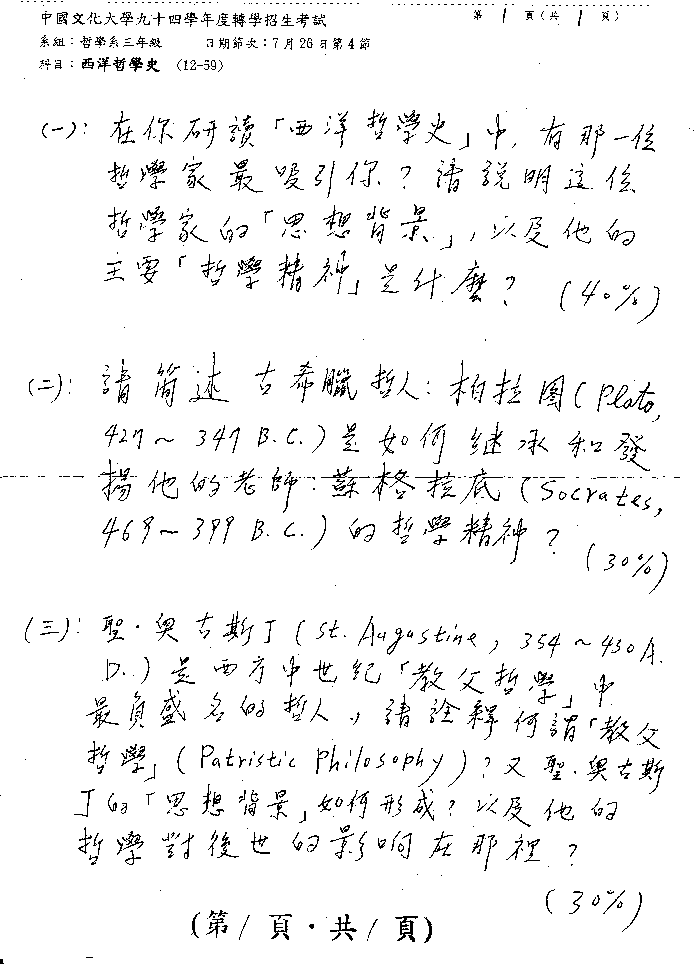 中國文化大學九十四學年度轉學招生考試 第 1 頁(共 1 頁)
系組：哲學系三年級 日期節次：7月26日第4節
科目：西洋哲學史 (12-59)
(一)：在你研讀「西洋哲學史」中，有那一位
哲學家最吸引你？請說明這位
哲學家的「思想背景」，以及他的
主要「哲學精神」是什麼？ (40%)
(二)：請簡述古希臘哲人：柏拉圖(Plato,
427～347 B.C.)是如何繼承和發
揚他的老師：蘇格拉底(Socrates,
469～399 B.C.)的哲學精神？
(30%)
(三)：聖·奧古斯丁(St. Augustine, 354～430A.
D.)是西方中世紀「教父哲學」中
最負盛名的哲人，請詮釋何謂「教父
哲學」(Patristic Philosophy)？又聖·奧古斯
丁的「思想背景」如何形成？以及他的
哲學對後世的影响在那裡？
(30%)
(第 1 頁·共 1 頁)